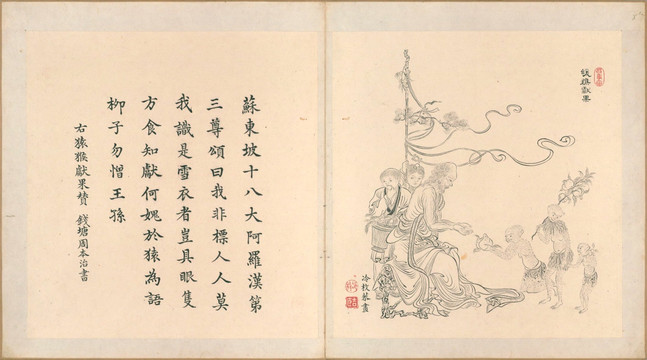 獻果
冷枚恭畫
蘇東坡十八大阿羅漢第
三尊頌曰我非標人人莫
我識是雪衣者豈具眼隻
方食知獻何媿於猿為語
柳子勿憎王孫
右猿猴獻果贊 錢塘周本治書